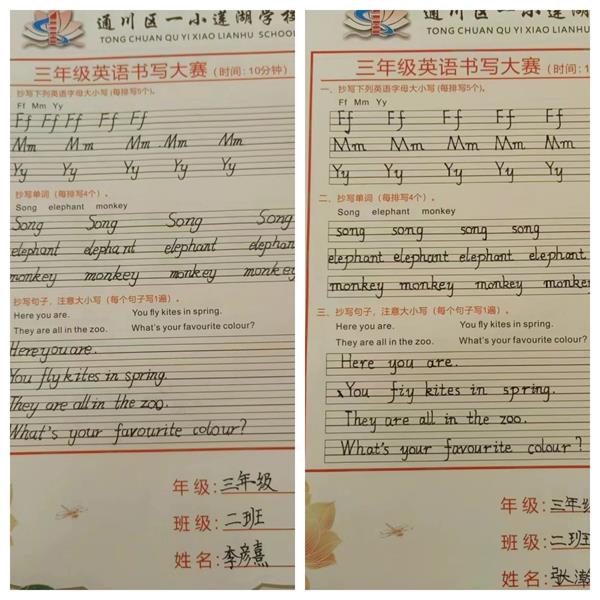 通川区一小莲湖学校
TONG CHUAN QU YI XIAO LIANHU SCHOOL
三年级英语书写大赛(时间:10分钟)
抄写下列英语字母大小写(每排写5个)。
Ff Mm Yy
Ff Ff Ff Ff Ff
Mm Mm Mm Mm Mm
Yy Yy Yy Yy Yy
抄写单词(每排写4个)。
Song elephant monkey
Song Song Song Song
elephant elephant elephant elephan
monkey monkey monkey monkey
抄写句子,注意大小写(每个句子写1遍)。
Here you are. You fly kites in spring.
They are all in the zoo. What's your favourite colour?
Here you are.
You fly kites in spring.
They are all in the zoo.
What's your favourite colour?
年级:三年级
班级:二班
姓名:李彦熹
通川区一小莲湖学
TONG CHUAN QU YI XIAO LIANHU SC
三年级英语书写大赛(时间:1
一、抄写下列英语字母大小写(每排写5个)。
Ff Mm Yy
Ff Ff Ff Ff Ff
Mm Mm Mm Mm Mm
Yy Yy Yy Yy Yy
二、抄写单词(每排写4个)。
Song elephant monkey
song song song song
elephant elephant elephant elephant
monkey monkey monkey monkey
三、抄写句子,注意大小写(每个句子写1遍)。
Here you are. You fly kites in spring.
They are all in the zoo. What's your favourite colour?
Here you are.
You fiy kites in spring.
They are all in the zoo.
What's your favourite colour?
年级:三年级
班级:二班
姓名:张瀚